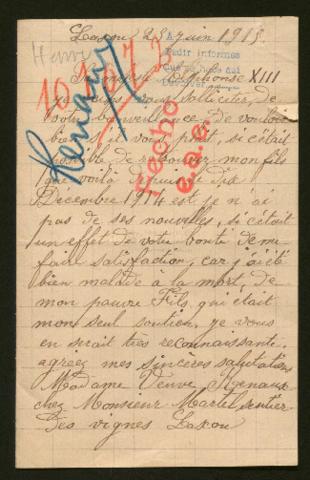 Laxou 23 juin 1915
Henry
A
Pedir informes
Monsieur Alphonse XIII
Fecho
je vous sollicites, de
votre bienveillance, de vouloir
bien s'il vous plait, si c'était
possible de retrouver mon fils
que voilà depuis le dix
Décembre 1914 est je n'ai
pas de ses nouvelles, si c'était
un effet de votre bonté de me
faire satisfaction, car j'ai été
bien malade à la mort, de
mon pauvre Fils qui était
mon seul soutien, je vous
en serait très reconnaissante.
agréez mes sincères salutations
Madame Veuve
chez Monsieur Martel rentier
des vignes Laxou